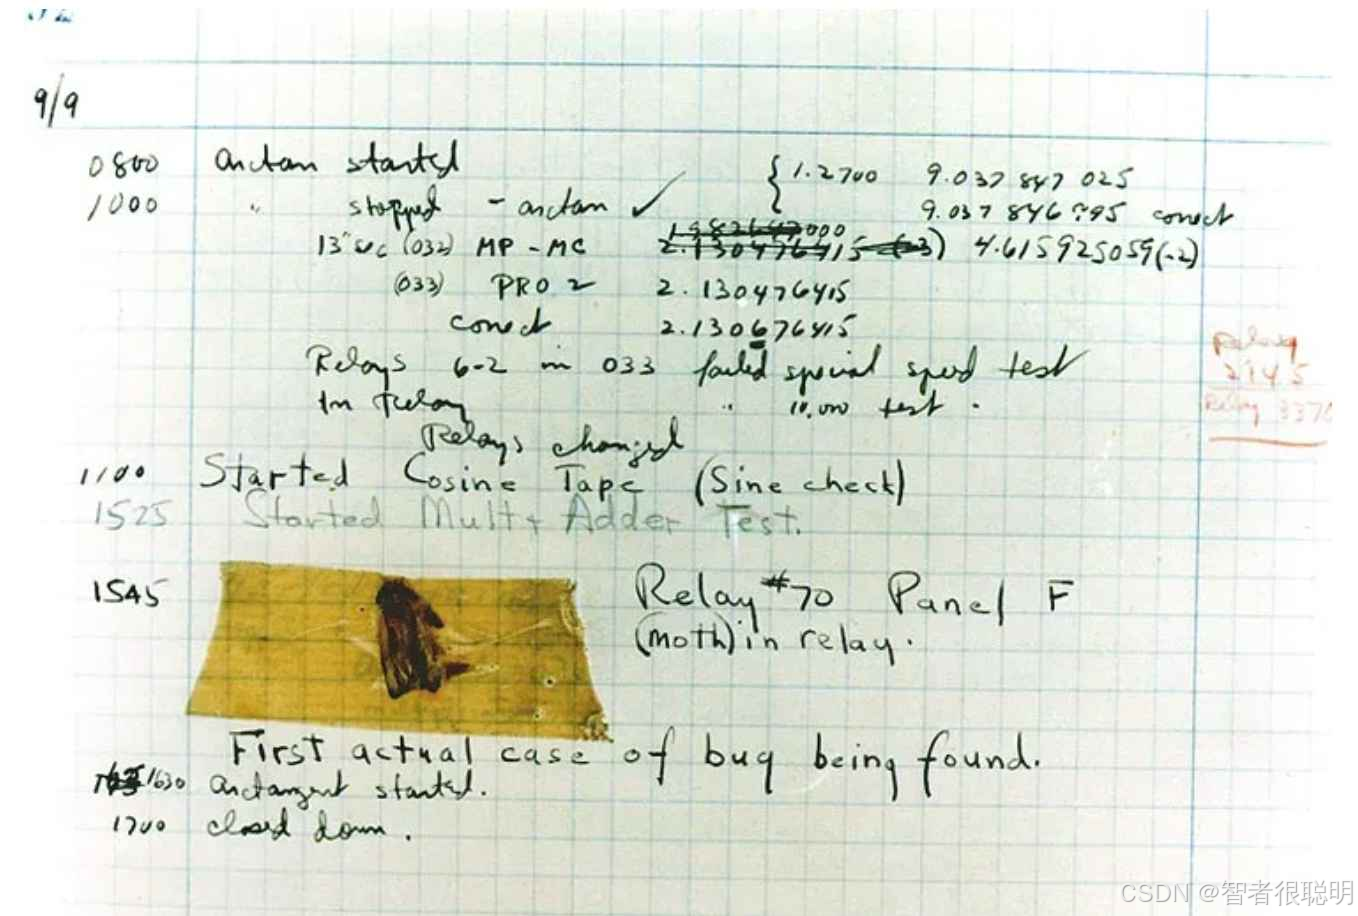 9/9
0800 arctan started { 1.2700 9.037 847 025
1000 " stopped - arctan ✓ 9.037 846 795 correct
13"uc (032) MP - MC 2.130476415 (-3) 4.615925059(-2)
(033) PRO 2 2.130476415
correct 2.130676415
Relays 6-2 in 033 failed special speed test
In Relay " 10,000 test .
Relay
2145
Relay 3370
Relays changed
1100 Started Cosine Tape (Sine check)
1525 Started Mult+ Adder Test.
1545 Relay #70 Panel F
(moth) in relay.
First actual case of bug being found.
1630 arctangent started.
1700 closed down.
CSDN @智者很聪明